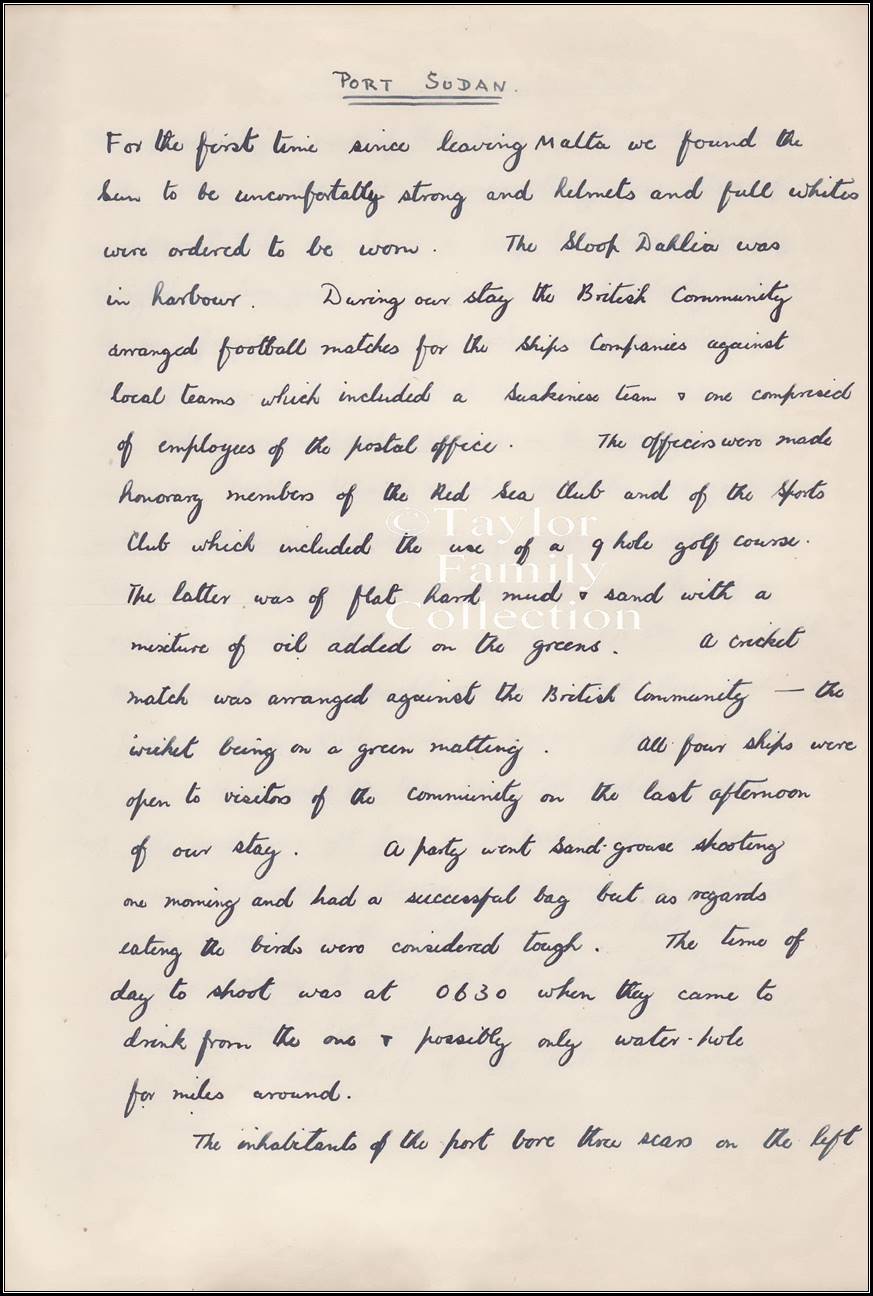 PORT SUDAN.
For the first time since leaving Malta we found the
Sun to be uncomfortably strong and helmets and full whites
were ordered to be worn. The Sloop Dahlia was
in harbour. During our stay the British Community
arranged football matches for the ships Companies against
local teams which included a Suakinese team & one comprised
of employees of the postal office. The officers were made
honorary members of the Red Sea Club and of the Sports
Club which included the use of a 9 hole golf course.
The latter was of flat hard mud & sand with a
mixture of oil added on the greens. A cricket
match was arranged against the British Community — the
wicket being on a green matting. All four ships were
open to visitors of the community on the last afternoon
of our stay. A party went Sand-grouse shooting
one morning and had a successful bag but as regards
eating the birds were considered tough. The time of
day to shoot was at 0630 when they came to
drink from the one & possibly only water-hole
for miles around.
The inhabitants of the port bore three scars on the left
©Taylor
Family
Collection